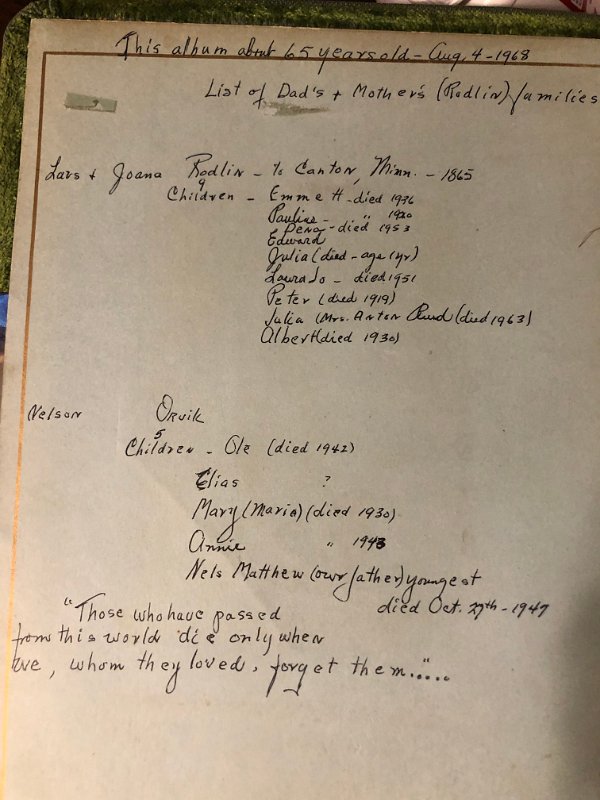 This album about 65 years old - Aug, 4 - 1968
List of Dad's + Mother's (Rodlin) families
Lars + Joana Rodlin - to Canton, Minn. - 1865
9
Children - Emma H - died 1936
Pauline - " 1920
Dena - died 1953
Edward
Julia (died - age 1 yr)
Laura Jo - died 1951
Peter (died 1919)
Julia (Mrs. Anton Ruud (died 1963)
Albert (died 1930)
Nelson Orvik
5
Children - Ole (died 1942)
Elias ?
Mary (Marie) (died 1930)
Annie " 1943
Nels Matthew (our father) youngest
died Oct. 27th - 1947
"Those who have passed
from this world die only when
we, whom they loved, forget them..."...